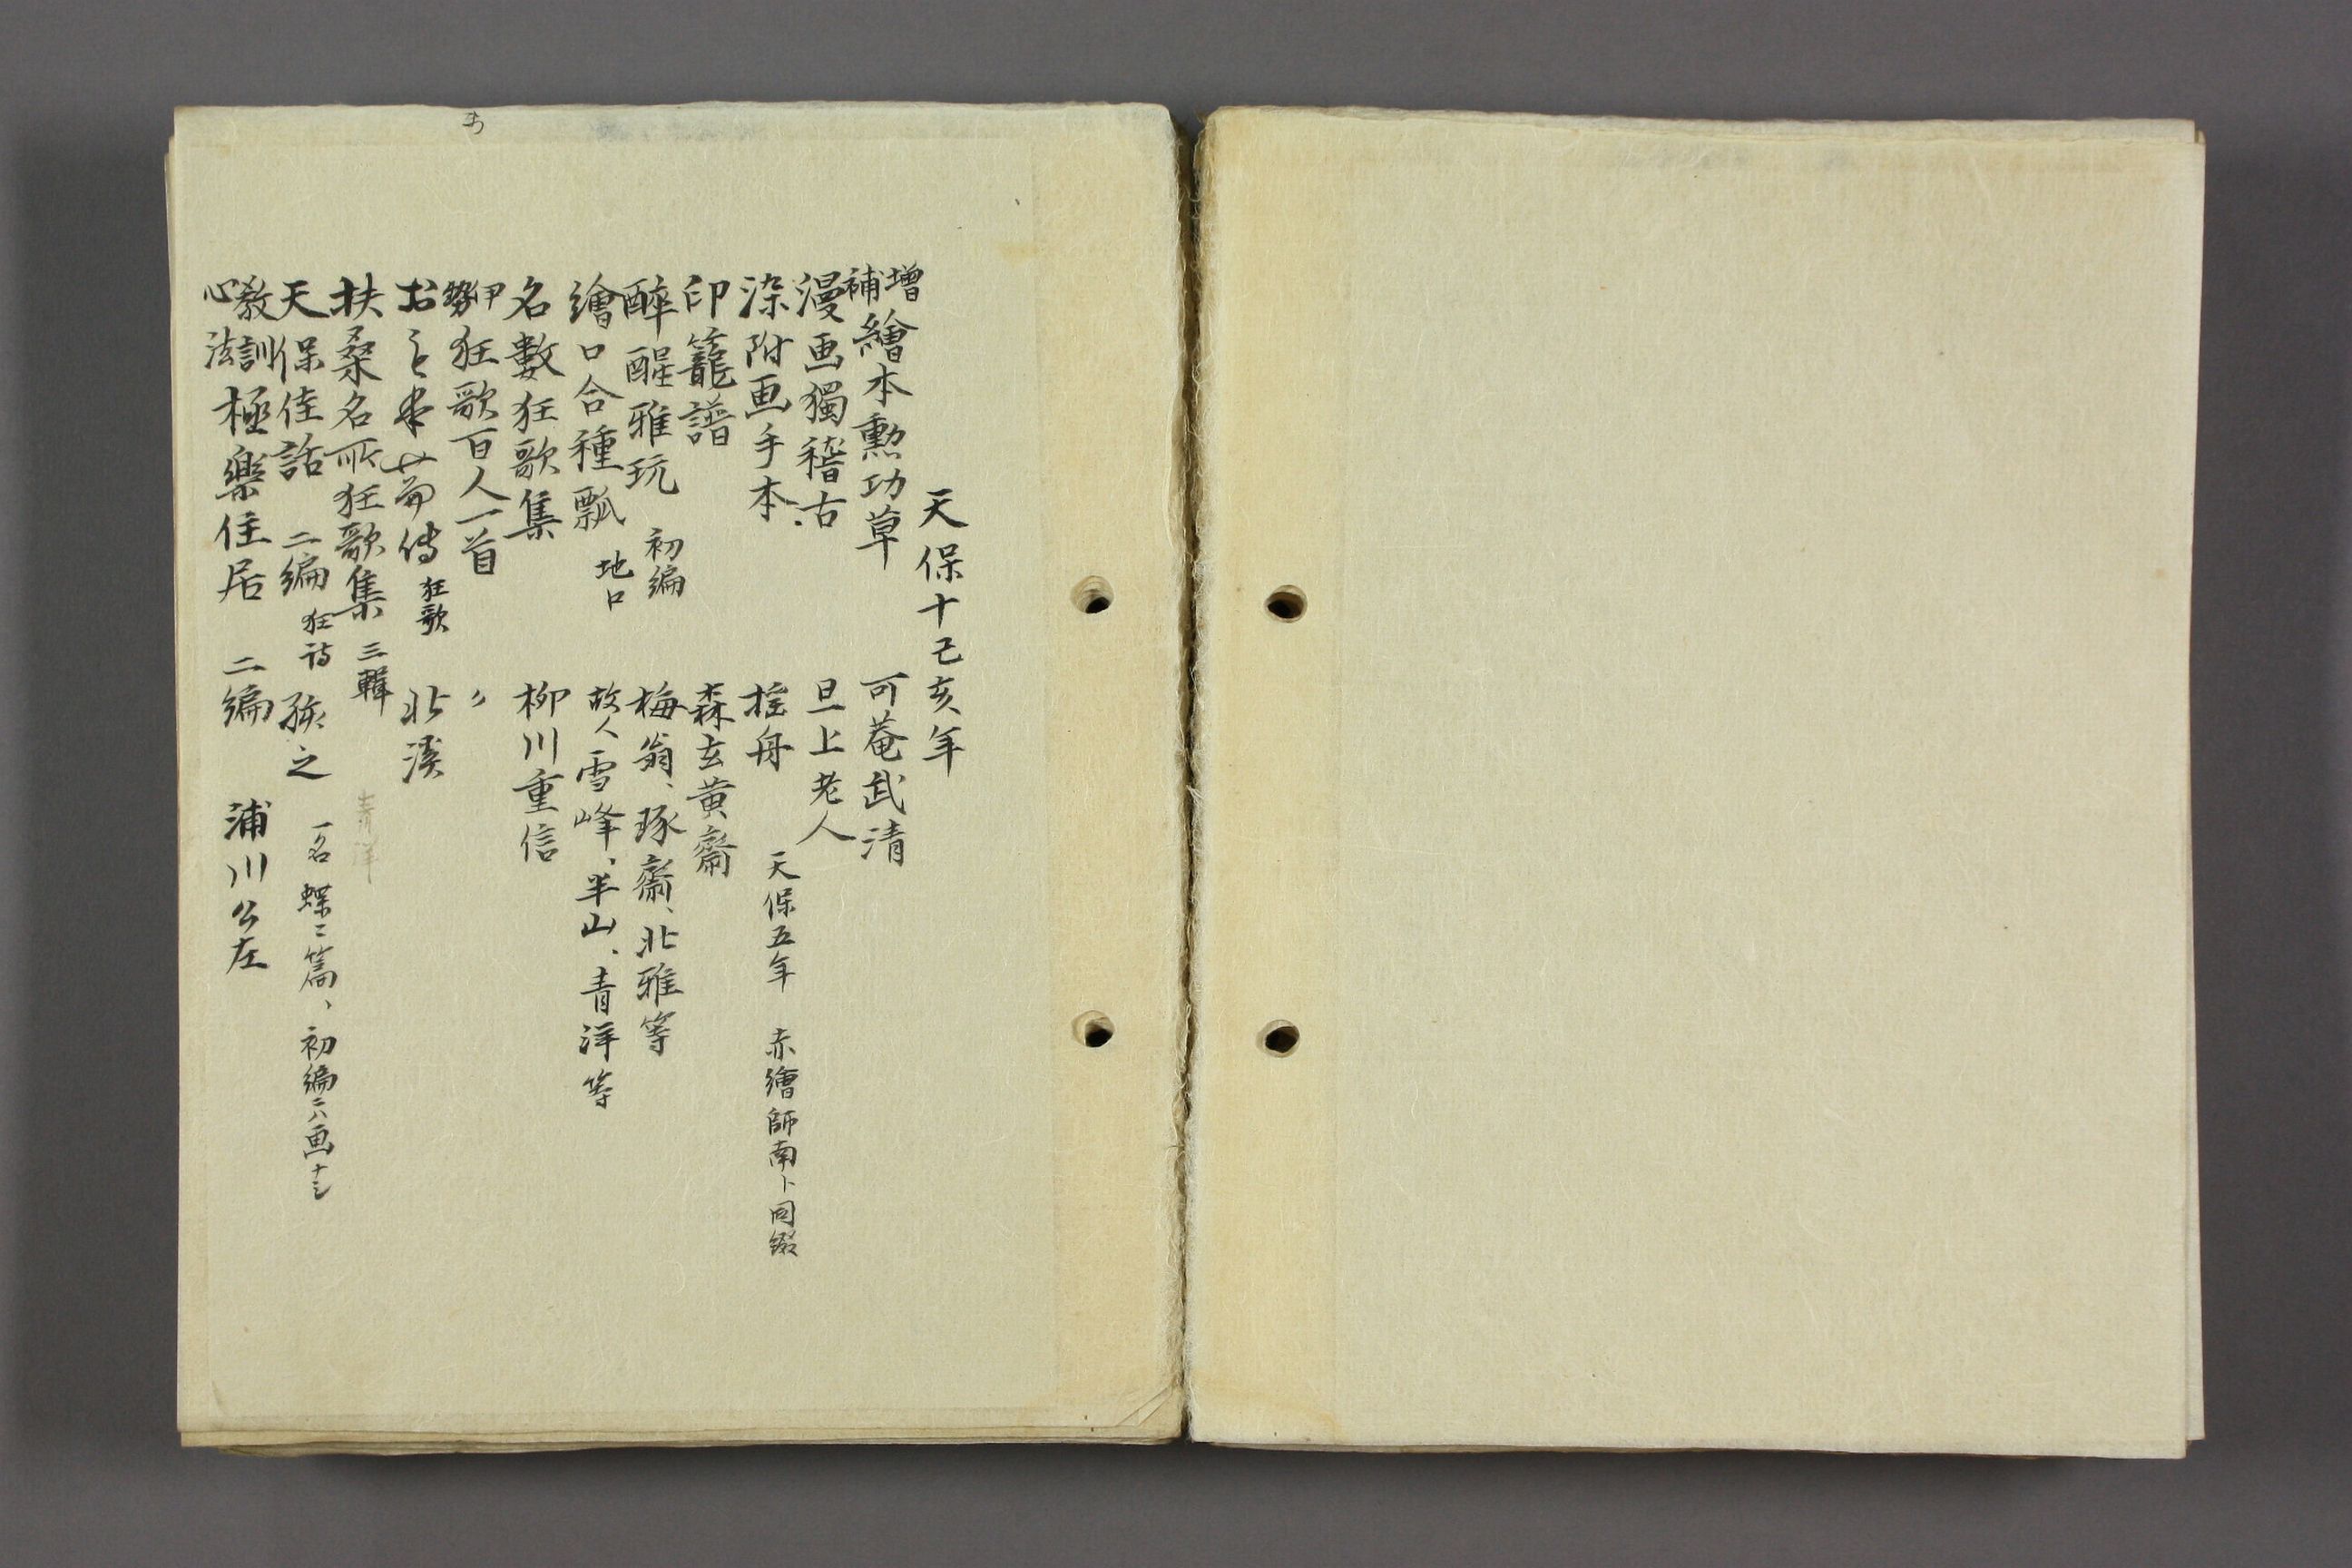 天保十己亥年
増補繪本勲功草 可菴武清
漫画獨稽古 旦上老人
染附画手本 揺舟 天保五年 赤繪師南ト同綴
印籠譜 森玄黄齋
醉醒雅玩 初編 梅翁、琢齋、北雅等
繪口合種瓢 地口 故人雪峰、半山、青洋等
名數狂歌集 柳川重信
伊勢狂歌百人一首 〃
狂歌 北溪
扶桑名所狂歌集 三輯 青洋
天保佳話 二編 狂詩 之 一名 蝶二篇、初編ニハ画ナシ
教訓心法極樂住居 二編 浦川公左